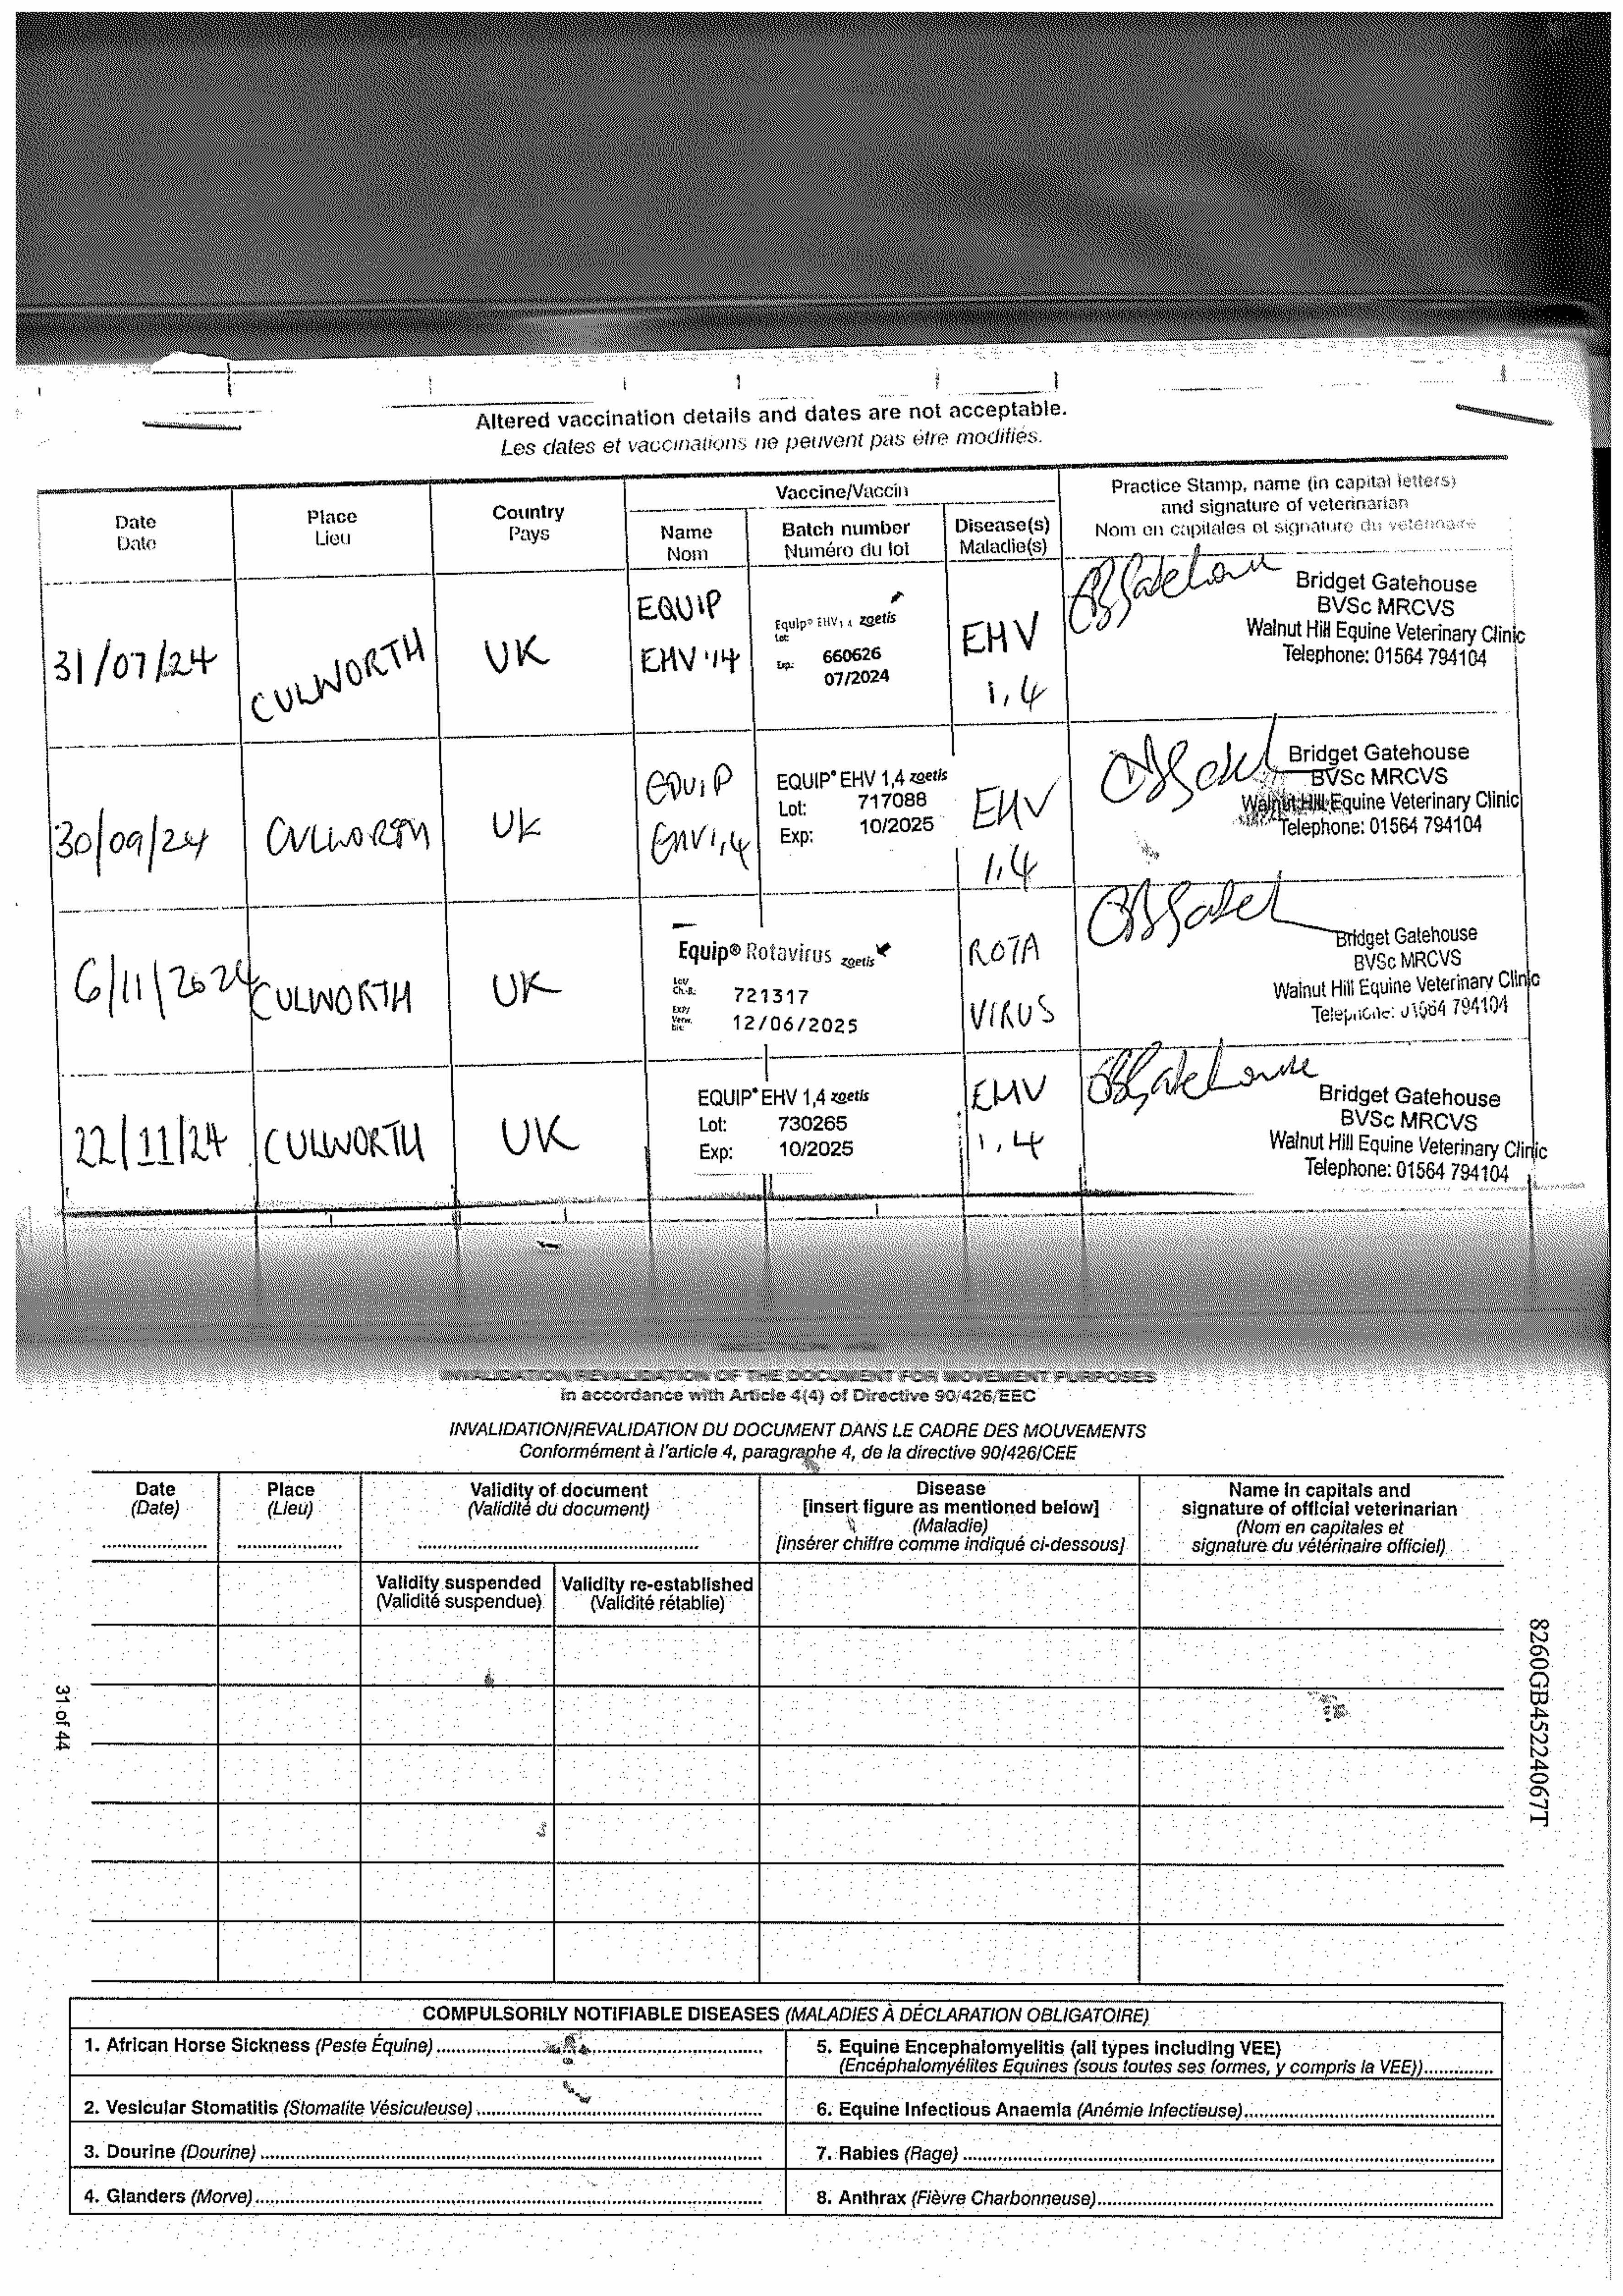 Altered vaccination details and dates are not acceptable.
Les dates et vaccinations ne peuvent pas être modifiés.
Date
Date
Place
Lieu
Country
Pays
Vaccine/Vaccin
Name
Nom
Batch number
Numéro du lot
Disease(s)
Maladie(s)
Practice Stamp, name (in capital letters)
and signature of veterinarian
Nom en capitales et signature du vétérinaire
31/07/24
CULWORTH
UK
EQUIP
EHV '14
Equip® EHV 1,4 zoetis
Lot:
660626
Exp.:
07/2024
EHV
1,4
Bridget Gatehouse
BVSc MRCVS
Walnut Hill Equine Veterinary Clinic
Telephone: 01564 794104
30/09/24
CULWORTH
UK
EQUIP
EHV1,4
EQUIP® EHV 1,4 zoetis
Lot: 717088
Exp: 10/2025
EHV
1,4
Bridget Gatehouse
BVSc MRCVS
Walnut Hill Equine Veterinary Clinic
Telephone: 01564 794104
6/11/2024
CULWORTH
UK
Equip® Rotavirus zoetis
Lot/
Ch.-B.:
721317
Exp/
Verw.
bis:
12/06/2025
ROTA
VIRUS
Bridget Gatehouse
BVSc MRCVS
Walnut Hill Equine Veterinary Clinic
Telephone: 01564 794104
22/11/24
CULWORTH
UK
EQUIP® EHV 1,4 zoetis
Lot: 730265
Exp: 10/2025
EHV
1,4
Bridget Gatehouse
BVSc MRCVS
Walnut Hill Equine Veterinary Clinic
Telephone: 01564 794104
INVALIDATION/REVALIDATION OF THE DOCUMENT FOR MOVEMENT PURPOSES
in accordance with Article 4(4) of Directive 90/426/EEC
INVALIDATION/REVALIDATION DU DOCUMENT DANS LE CADRE DES MOUVEMENTS
Conformément à l'article 4, paragraphe 4, de la directive 90/426/CEE
Date
(Date)
Place
(Lieu)
Validity of document
(Validité du document)
Disease
[insert figure as mentioned below]
(Maladie)
[insérer chiffre comme indiqué ci-dessous]
Name in capitals and
signature of official veterinarian
(Nom en capitales et
signature du vétérinaire officiel)
Validity suspended
(Validité suspendue)
Validity re-established
(Validité rétablie)
31 of 44
8260GB45224067T
COMPULSORILY NOTIFIABLE DISEASES (MALADIES À DÉCLARATION OBLIGATOIRE)
1. African Horse Sickness (Peste Équine)
2. Vesicular Stomatitis (Stomatite Vésiculeuse)
3. Dourine (Dourine)
4. Glanders (Morve)
5. Equine Encephalomyelitis (all types including VEE)
(Encéphalomyélites Equines (sous toutes ses formes, y compris la VEE))
6. Equine Infectious Anaemia (Anémie Infectieuse)
7. Rabies (Rage)
8. Anthrax (Fièvre Charbonneuse)